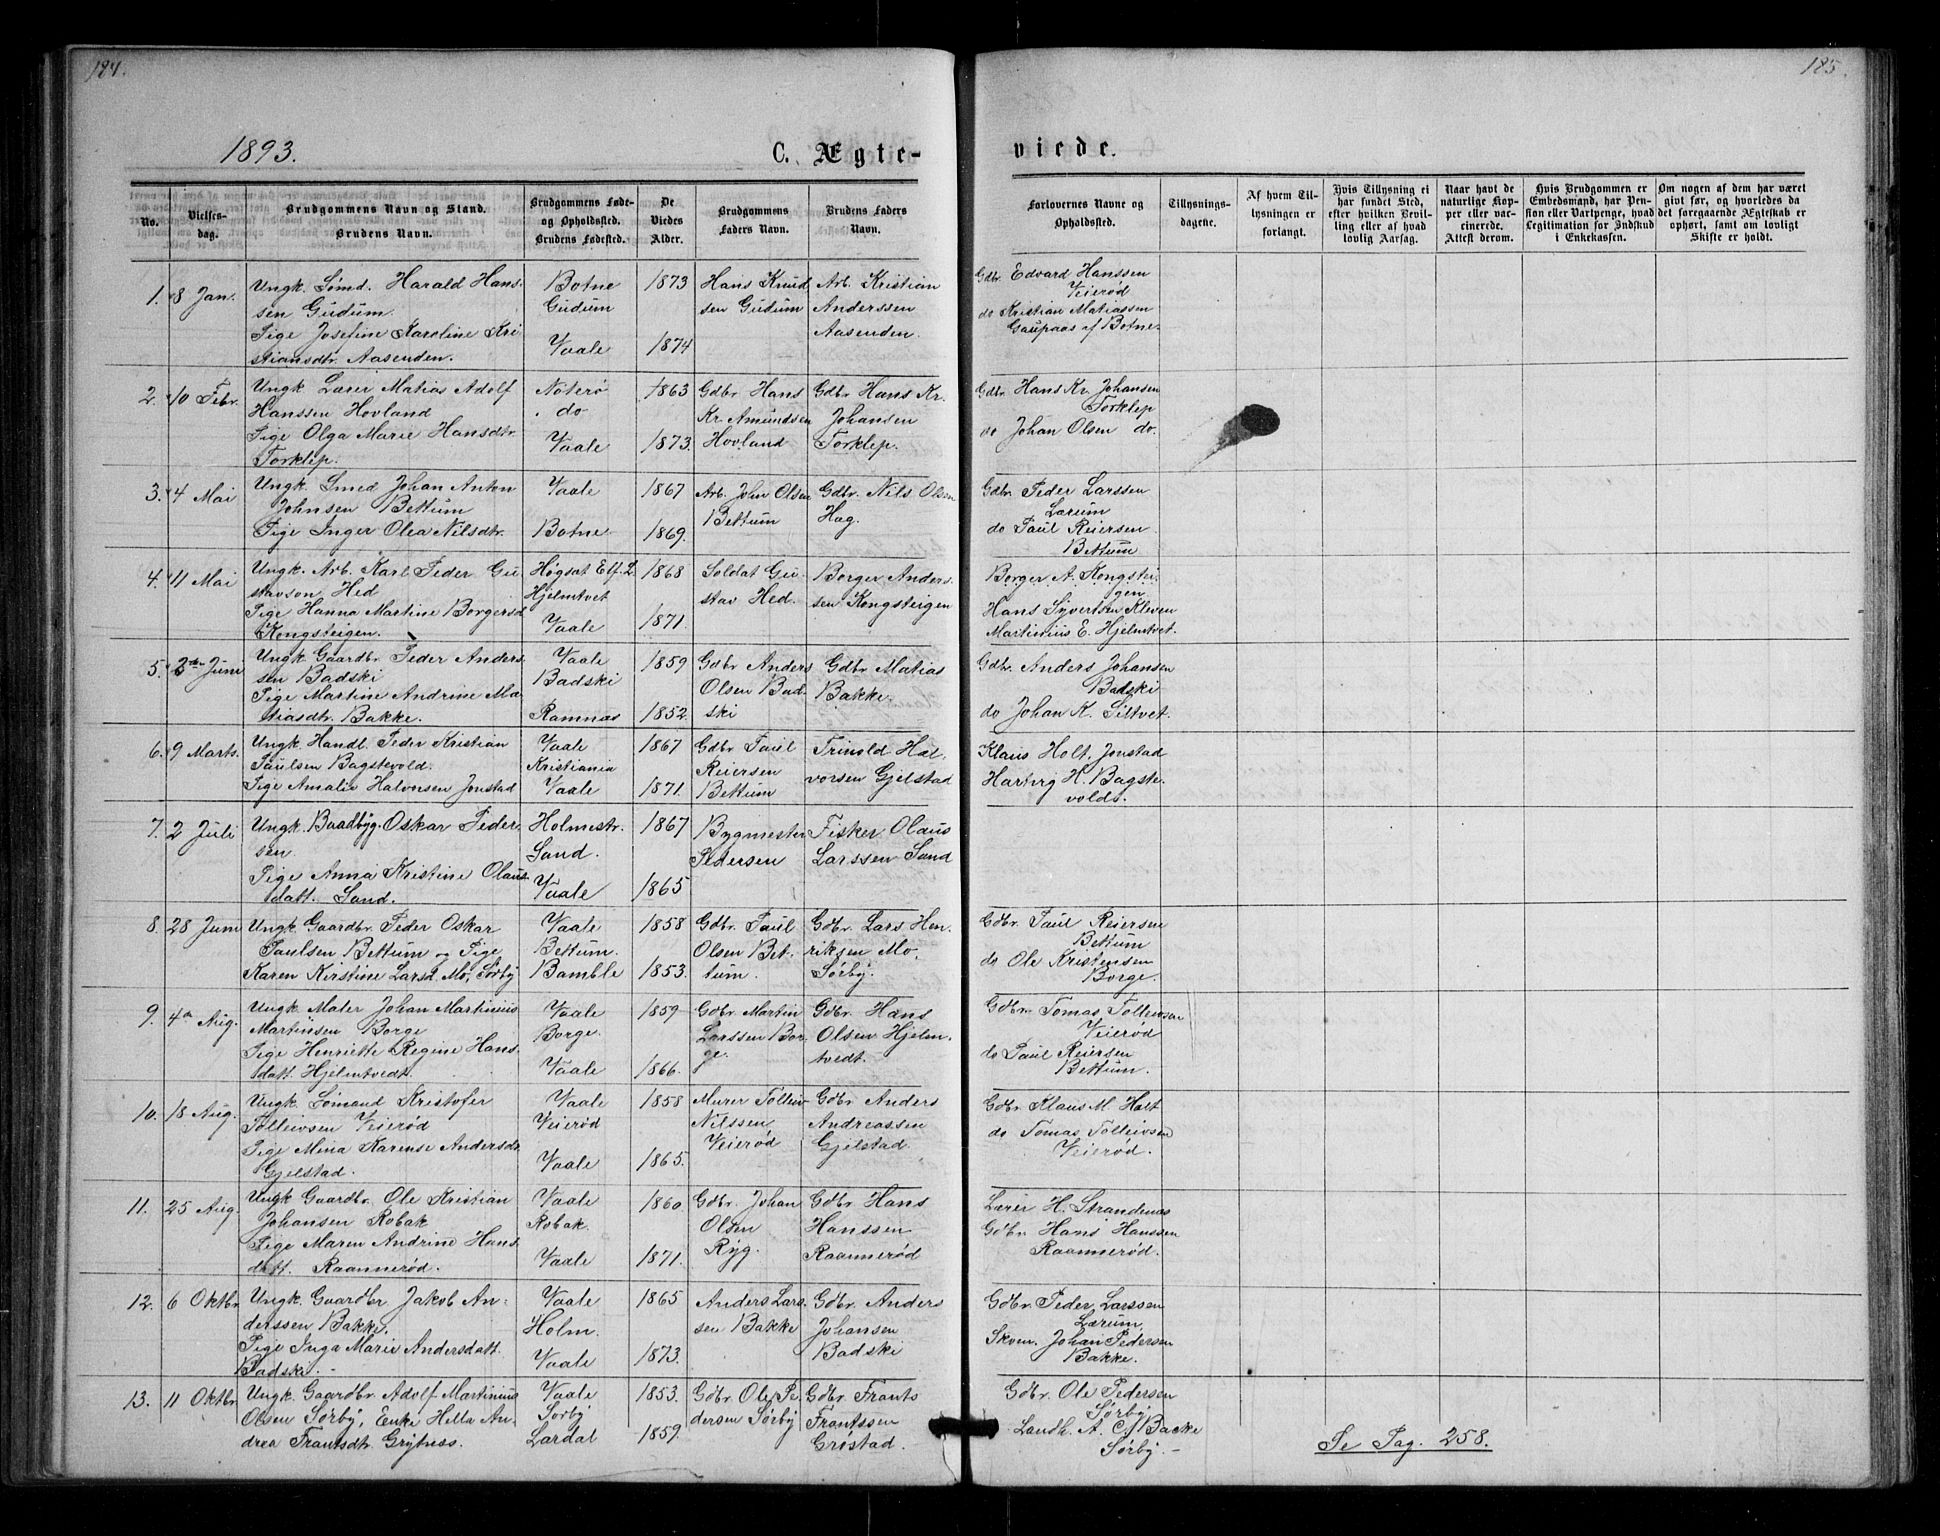 184.
1893.
C. Ægte-
No.
Vielses-
dag.
Brudgommens Navn og Stand.
Brudens Navn.
Brudgommens Føde-
og Opholdssted.
Brudens Fødested.
De
Viedes
Alder.
Brudgommens
Faders Navn.
Brudens Faders
Navn.
1.
8 Jan.
Ungk. Sømd. Harald Hans-
sen Gudum.
Pige Josefine Karoline Kri
stiansdtr. Aasenden.
Botne
Gudum
Vaale
1873
1874
Hans Knud
sen Gudum
Arb. Kristian
Anderssen
Aasenden.
2.
10 Febr.
Ungk. Lærer Matias Adolf
Hanssen Hovland
Pige Olga Marie Hansdtr.
Torklep.
Noterø
do
Vaale
1863
1873.
Gdbr. Hans
Kr. Amundsen
Hovland
Gdbr. Hans Kr.
Johansen
Torklep.
3.
4 Mai
Ungk. Smed Johan Anton
Johnsen Bettum
Pige Inger Olea Nilsdtr.
Vaale
Botne
1867
1869.
Arb. John Olsen
Bettum
Gdbr. Nils Olsen
Hag.
4.
11 Mai
Ungk. Arb. Karl Peder Gu
stavson Hed
Pige Hanna Martine Borgersd
Kongsteigen.
Høgsat Elf. 2
Hjelmtvet
Vaale
1868
1871.
Soldat Gu-
stav Hed.
Borger Anders-
sen Kongsteigen
5.
Juni
Ungk. Gaardbr. Peder Anders
sen Badski
Pige Martine Andrine Ma
tiasdtr. Bakke.
Vaale
Badski
Ramnæs
1859
1852.
Gdbr. Anders
Olsen Bad-
ski
Gdbr. Matias
Bakke.
6.
9 Marts.
Ungk. Handl. Peder Kristian
Paulsen Bagstevold.
Pige Amalie Halvorsen Jonstad
Vaale
Kristiania
Vaale
1867
1871.
Gdbr. Paul
Reiersen
Bettum
Trinold Hal-
vorsen Gjelstad
7.
2 Juli
Ungk. Baadbyg. Oskar Peder-
sen.
Pige Anna Kristine Olaus
datt. Sand.
Holmestr.
Sand.
Vaale
1867
1865
Bygmester
Pedersen
Fisker Olaus
Larssen Sand
8.
28 Juni
Ungk. Gaardbr. Peder Oskar
Paulsen Bettum og Pige
Karen Kirstine Larsd. Mo, Sørby
Vaale
Bettum.
Bamble
1858
1853.
Gdbr. Paul
Olsen Bet-
tum.
Gdbr. Lars Hen-
riksen Mo,
Sørby.
9.
4 Aug.
Ungk. Maler Johan Martinius
Martinsen Borge
Pige Henriette Regine Hans-
datt. Hjelmtvedt.
Vaale
Borge.
Vaale
1859
1866.
Gdbr. Martin
Larssen Bor-
ge.
Gdbr. Hans
Olsen Hjelm-
tvedt.
10.
18 Aug.
Ungk. Sømand Kristofer
Tolleivsen Veierød
Pige Mina Karense Andersdtr
Gjelstad.
Vaale
Veierød
Vaale
1858
1865.
Murer Tolleiv
Nilssen
Veierød
Gdbr. Anders
Andreassen
Gjelstad
11.
25 Aug.
Ungk Gaardbr. Ole Kristian
Johansen Robak
Pige Maren Andrine Hans
datt. Raannerød.
Vaale
Robak.
Vaale
1860
1871.
Gdbr. Johan
Olsen
Ryg.
Gdbr. Hans
Hanssen
Raannerød
12.
6 Oktbr
Ungk. Gaardbr Jakob An-
derssen Bakke,
Pige Inga Marie Andersdatt.
Badski. -
Vaale
Holm.
Vaale
1865
1873.
Anders Lars-
sen Bakke
Gdbr. Anders
Johansen
Badski
13.
11 Oktbr
Ungk. Gaardbr. Adolf Martinius
Olsen Sørby, Enke Hella An-
drea Frantsdtr. Grytness.
Vaale
Sørby
Lardal
1853.
1859.
Gdbr. Ole Pe
dersen Sørby
Gdbr. Frants
Frantssen
Grøstad.
185.
viede.
Forlovernes Navne og
Opholdssted.
Tillysnings-
dagene.
Af hvem Til-
lysningen er
forlangt.
Hvis Tillysning ei
har fundet Sted,
efter hvilken Bevil-
ling eller af hvad
lovlig Aarsag.
Naar havt de
naturlige Kop-
per eller vac-
cinerede.
Attest derom.
Hvis Brudgommen er
Embedsmand, har Pen-
sion eller Vartpenge, hvad
Legitimation for Indskud
i Enkekassen.
Om nogen af dem har været
givt før, og hvorledes da
det foregaaende Ægteskab er
ophørt, samt om lovligt
Skifte er holdt.
Gdbr. Edvard Hanssen
Veierød
do Kristian Matiassen
Gaupaas af Botne
Gdbr. Hans Kr. Johansen
Torklep
do Johan Olsen do.
Gdbr. Peder Larssen
Lærum
do Paul Reiersen
Bettum
Borger A. Kongstei-
gen
Hans Syvertsen Kleven
Martinius E. Hjelmtvet.
Gdbr. Anders Johansen
Badski
do Johan K. Siltvet.
Klaus Holt, Jonstad
Hartvig H. Bagste-
volds.
Gdbr. Paul Reiersen
Bettum
do Ole Kristensen
Borge.
Gdbr. Tomas Tolleivsen
Veierød
do Paul Reiersen
Bettum.
Gdbr. Klaus M. Holt
do Tomas Tolleivsen
Veierød.
Lærer H. Strandenæs
Gdbr. Hans Hanssen
Raannerød.
Gdbr. Peder Larssen
Lærum.
Skom. Johan Pedersen
Bakke.
Gdbr. Ole Pedersen
Sørby
Landh. A. C. Backe
Sørby. -
Se Pag. 258.